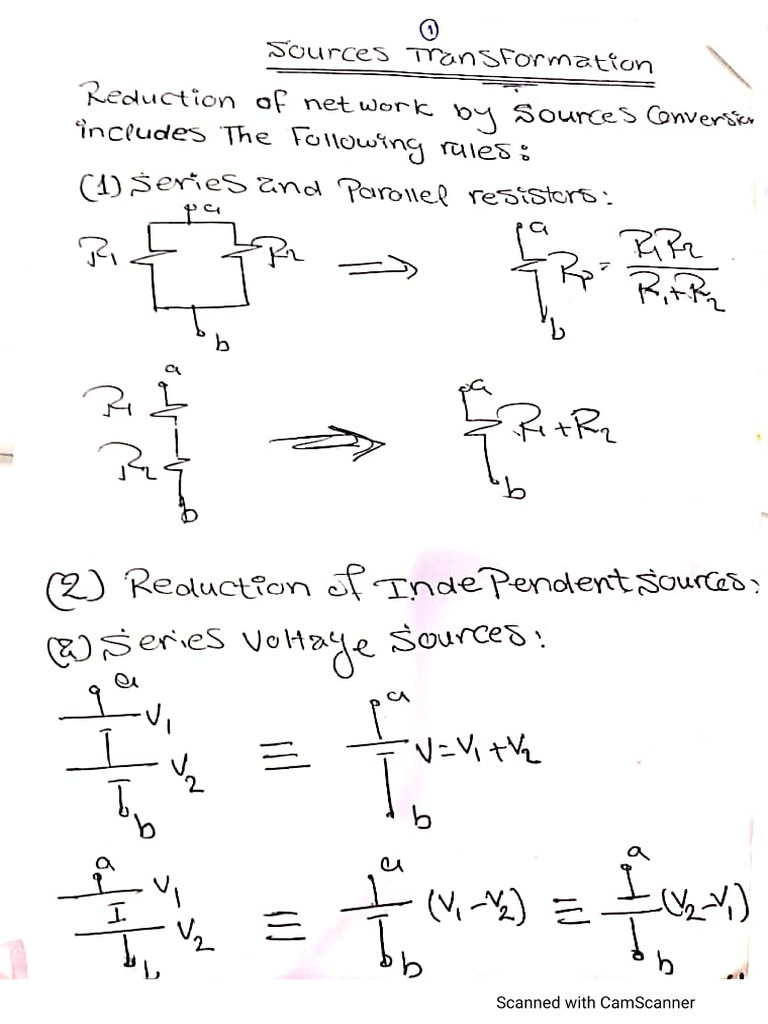 1
Sources Transformation
Reduction of network by Sources Conversion
includes The Following rules:
(1) Series and Parallel resistors:
a
R1 R2 ⇒ a Rp = R1R2 / R1+R2
b b
a a
R1 ⇒ R1+R2
R2
b b
(2) Reduction of Independent Sources:
(a) Series Voltage Sources:
a a
V1 ≡ V=V1+V2
V2
b b
a a a
V1 ≡ (V1-V2) ≡ (V2-V1)
V2
b b b
Scanned with CamScanner